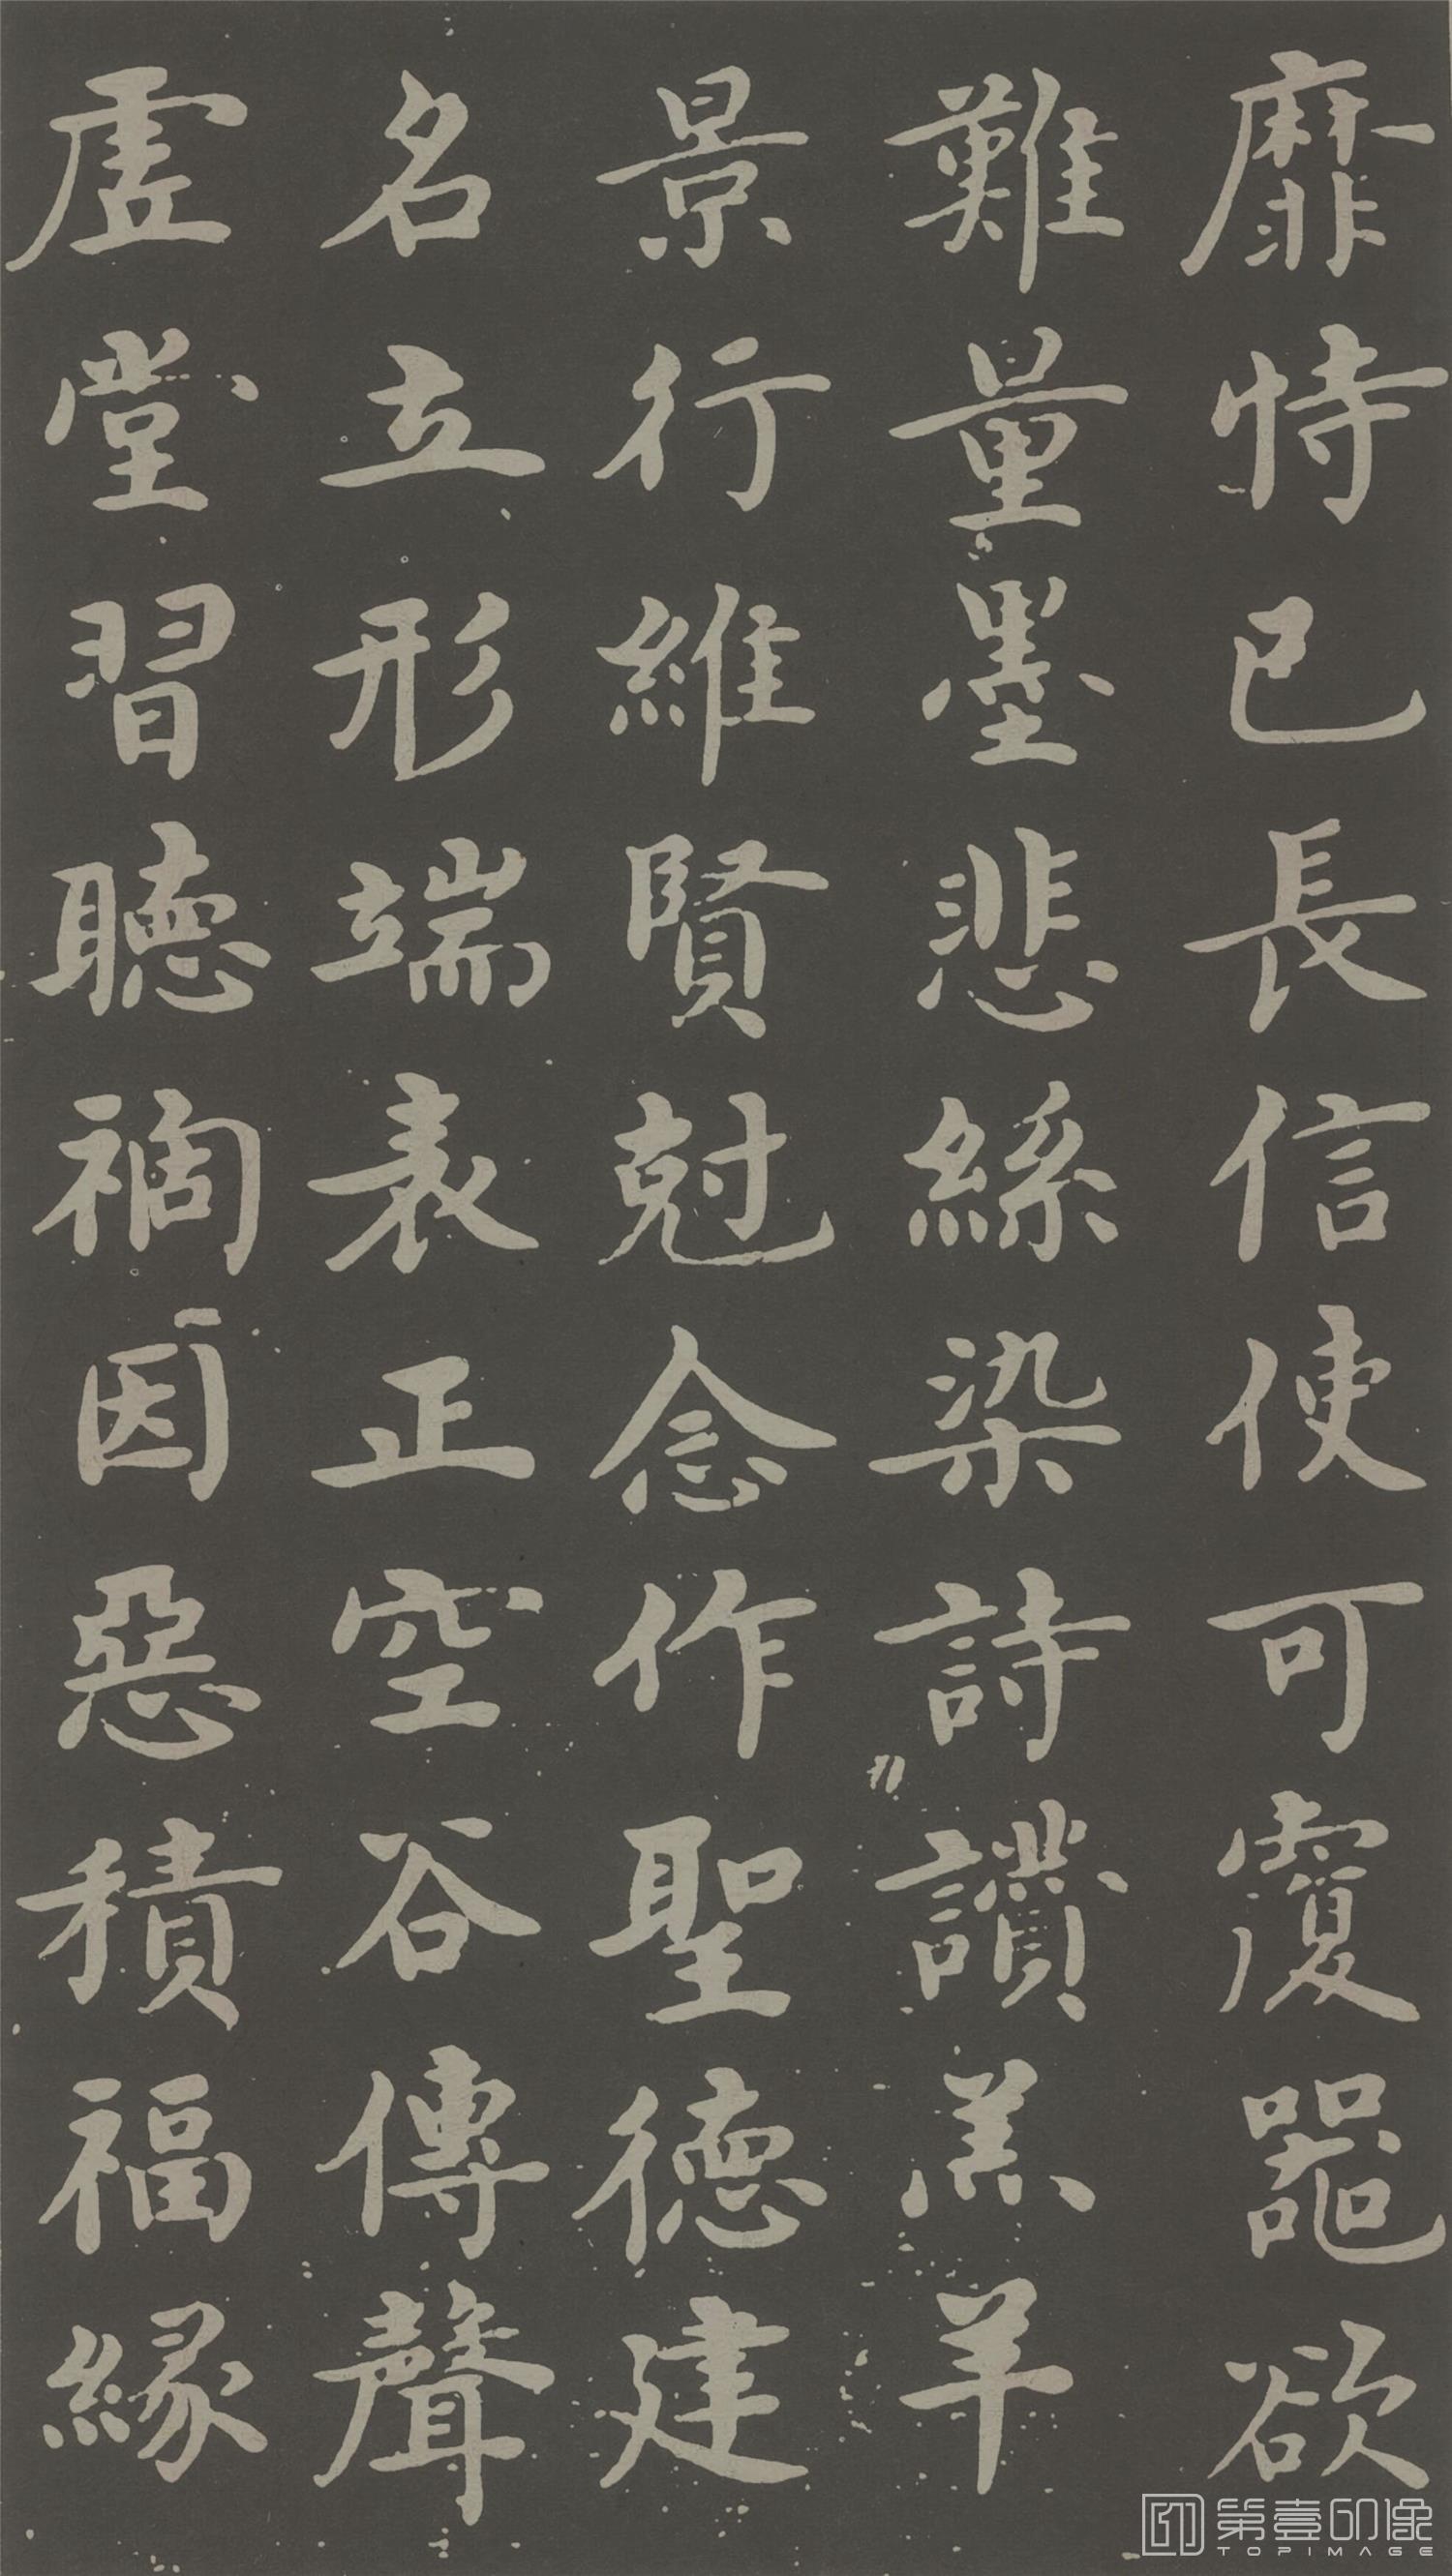 靡恃己長信使可覆器欲
難量墨悲絲染詩讚羔羊
景行維賢剋念作聖德建
名立形端表正空谷傳聲
虛堂習聽禍因惡積福緣
第壹印像
TOPIMAGE